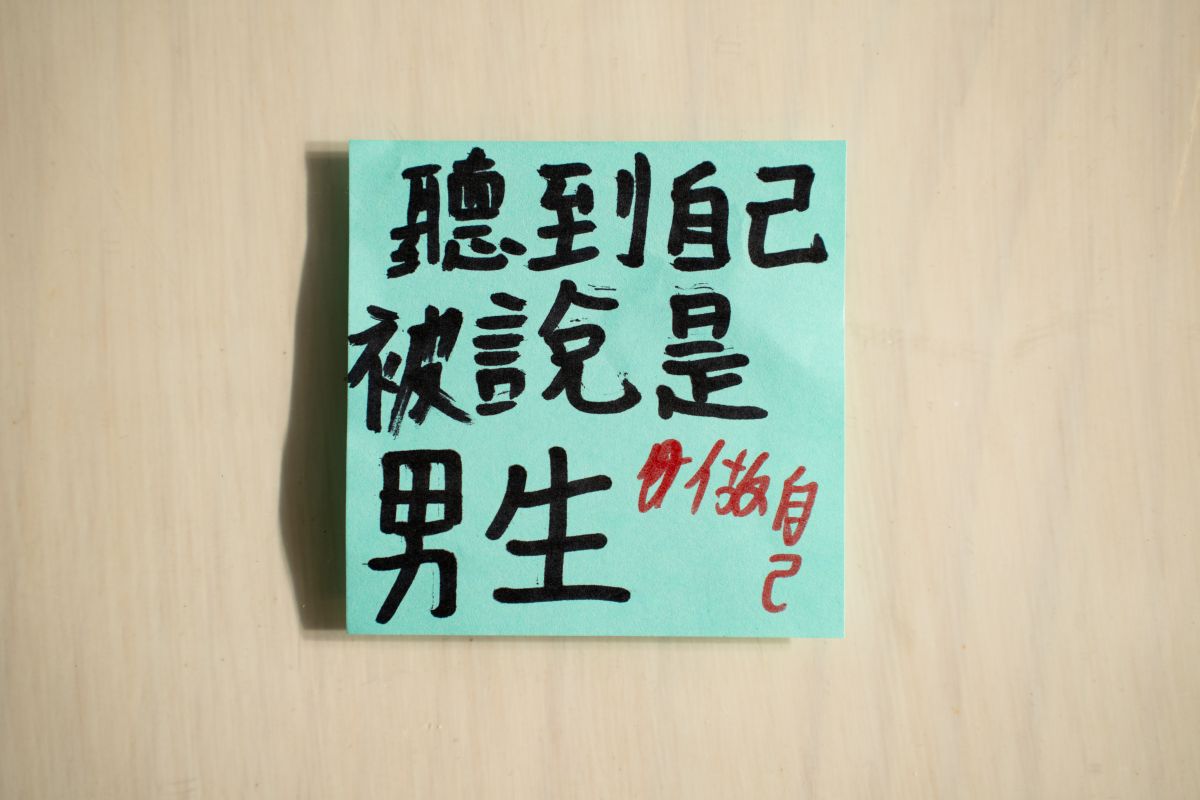 聽到自己
被說是
男生
做自
己